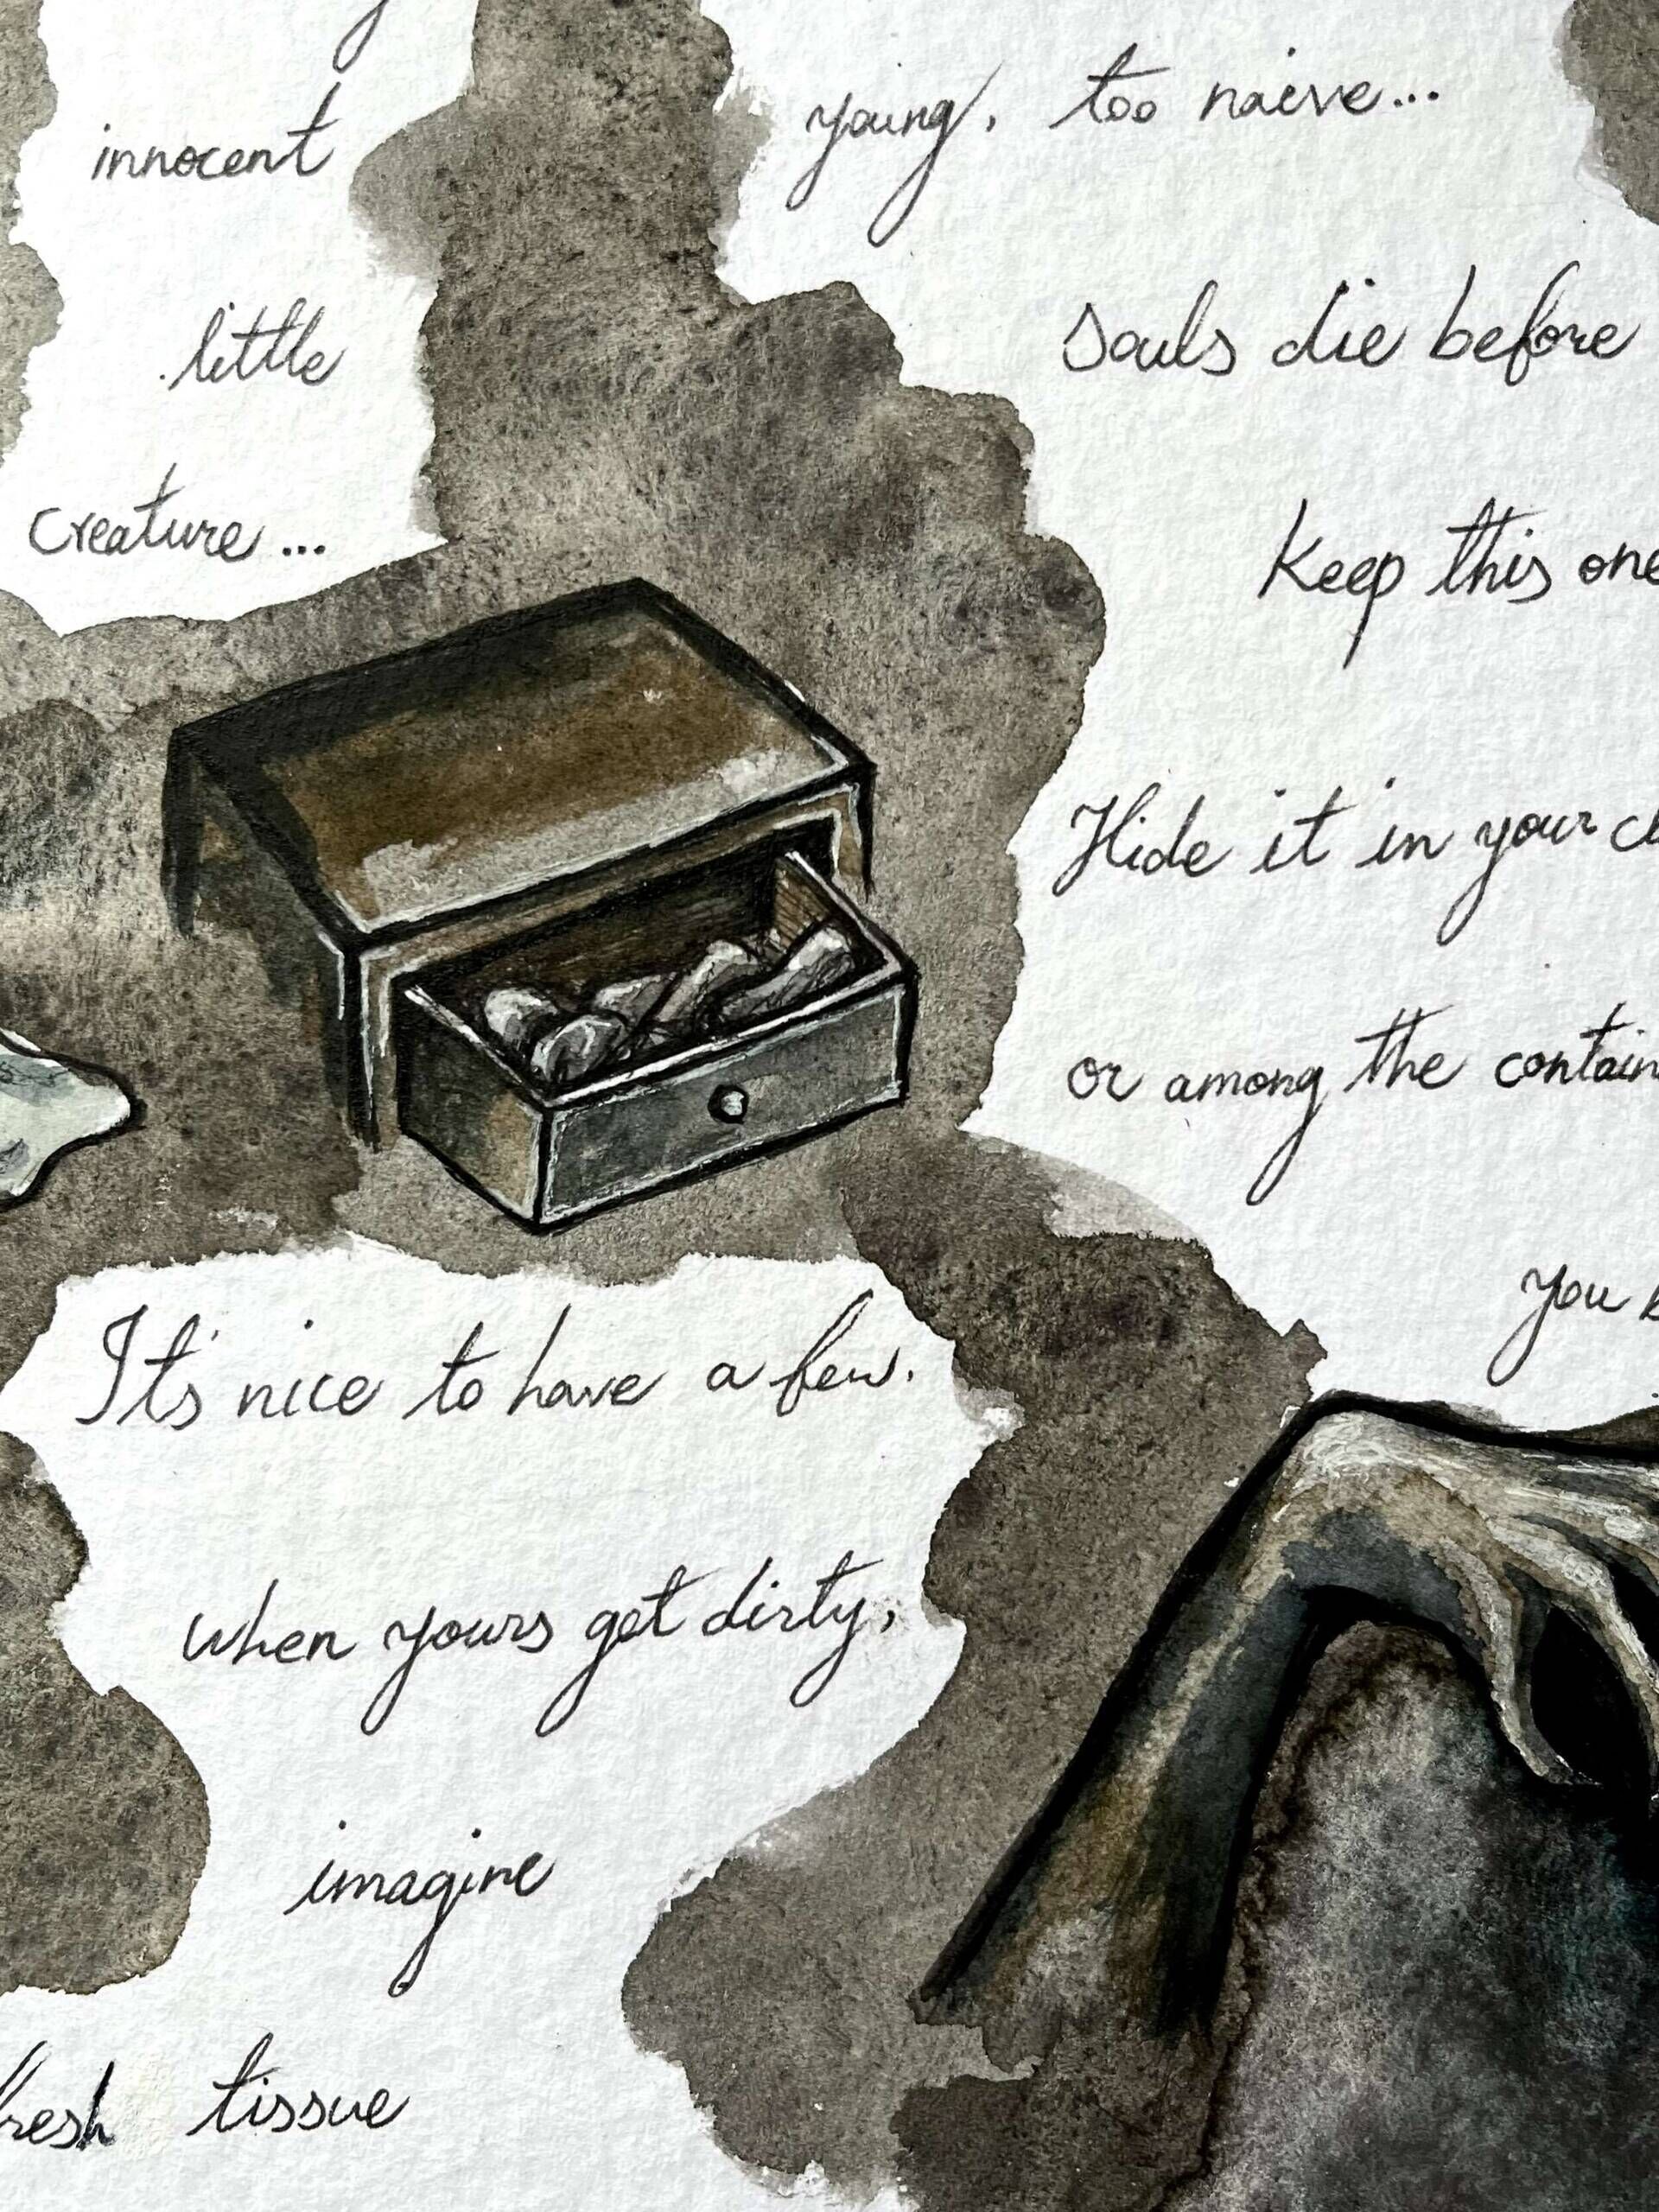 innocent
little
creature...
young, too naive...
souls die before
Keep this one
Hide it in your
or among the
you
It's nice to have a few.
when yours get dirty,
imagine
fresh tissue